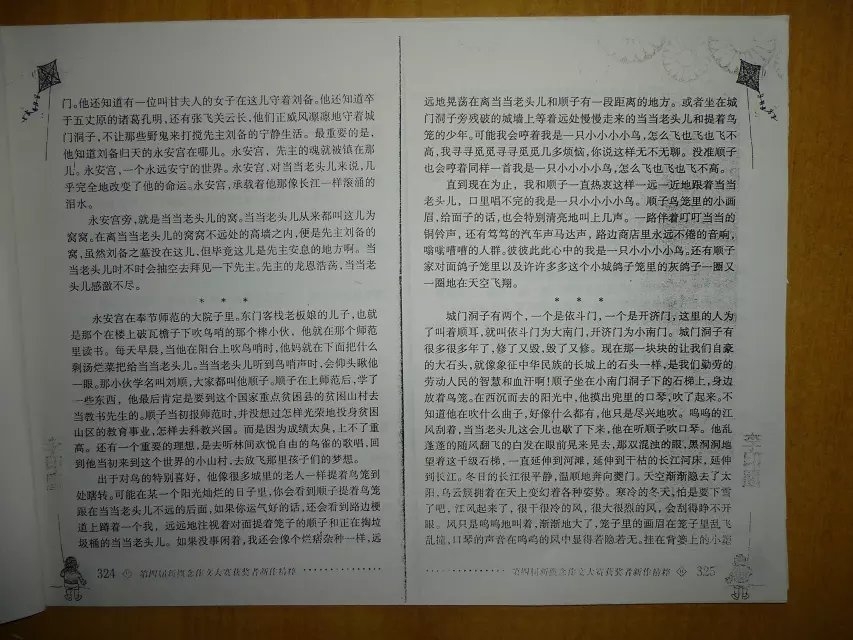 门。他还知道有一位叫甘夫人的女子在这儿守着刘备。他还知道卒
于五丈原的诸葛孔明，还有张飞关云长，他们正威风凛凛地守着城
门洞子，不让那些野鬼来打搅先主刘备的宁静生活。最重要的是，
他知道刘备归天的永安宫在哪儿。永安宫，先主的魂就被镇在那
儿。永安宫，一个永远安宁的世界。永安宫，对当当老头儿来说，几
乎完全地改变了他的命运。永安宫，承载着他那像长江一样滚涌的
泪水。
永安宫旁，就是当当老头儿的窝。当当老头儿从来都叫这儿为
窝窝。在离当当老头儿的窝窝不远处的高墙之内，便是先主刘备的
窝，虽然刘备之墓没在这儿，但毕竟这儿是先主安息的地方啊。当
当老头儿时不时会抽空去拜见一下先主。先主的龙恩浩荡，当当老
头儿感激不尽。
* * *
永安宫在奉节师范的大院子里。东门客栈老板娘的儿子，也就
是那个在楼上破瓦檐子下吹鸟哨的那个棒小伙，他就在那个师范
里读书。每天早晨，当他在阳台上吹鸟哨时，他妈就在下面把什么
剩汤烂菜把给当当老头儿。当当老头儿听到鸟哨声时，会仰头瞅他
一眼。那小伙学名叫刘顺，大家都叫他顺子。顺子在上师范后，学了
一些东西，他最后肯定是要到这个国家重点贫困县的贫困山村去
当教书先生的。顺子当初报师范时，并没想过怎样光荣地投身贫困
山区的教育事业，怎样去科教兴国。而是因为成绩太臭，上不了重
高。还有一个重要的理想，是去听林间欢悦自由的鸟雀的歌唱，回
到他当初来到这个世界的小山村，去放飞那里孩子们的梦想。
出于对鸟的特别喜好，他像很多城里的老人一样提着鸟笼到
处瞎转。可能在某一个阳光灿烂的日子里，你会看到顺子提着鸟笼
跟在当当老头儿不远的后面，如果你运气好的话，还会看到路边梗
道上蹲着一个我，远远地注视着对面提着笼子的顺子和正在掏垃
圾桶的当当老头儿。如果没事闲着，我还会像个烂痞杂种一样，远
324 第四届新概念作文大赛获奖者新作精粹
远地晃荡在离当当老头儿和顺子有一段距离的地方。或者坐在城
门洞子旁残破的城墙上等着远处慢慢走来的当当老头儿和提着鸟
笼的少年。可能我会哼着我是一只小小小小鸟，怎么飞也飞也飞不
高，我寻寻觅觅寻寻觅觅几多烦恼，你说这样无不无聊。没准顺子
也会哼着同样一首我是一只小小小小鸟，怎么飞也飞也飞不高。
直到现在为止，我和顺子一直热衷这样一远一近地跟着当当
老头儿，口里唱不完的我是一只小小小小鸟。顺子鸟笼里的小画
眉，给面子的话，也会特别清亮地叫上几声。一路伴着叮叮当当的
铜铃声，还有笃笃的汽车声马达声，路边商店里永远不倦的音响，
嗡嗡嘈嘈的人群。彼彼此此心中的我是一只小小小小鸟。还有顺子
家对面鸽子笼里以及许许多多这个小城鸽子笼里的灰鸽子一圈又
一圈地在天空飞翔。
* * *
城门洞子有两个，一个是依斗门，一个是开济门，这里的人为
了叫着顺耳，就叫依斗门为大南门，开济门为小南门。城门洞子有
很多很多年了，修了又毁，毁了又修。现在那一块块的让我们自豪
的大石头，就像象征中华民族的长城上的石头一样，是我们勤劳的
劳动人民的智慧和血汗啊！顺子坐在小南门洞子下的石梯上，身边
放着鸟笼。在西沉而去的阳光中，他摸出兜里的口琴，吹了起来。不
知道他在吹什么曲子，好像什么都有，他只是尽兴地吹。呜呜的江
风刮着，当当老头儿这会儿也歇了下来，他在听顺子吹口琴。他乱
蓬蓬的随风翻飞的白发在眼前晃来晃去，那双混浊的眼，黑洞洞地
望着这千级石梯，一直延伸到河滩，延伸到干枯的长江河床，延伸
到长江。冬日的长江很平静，温顺地奔向夔门。天空渐渐隐去了太
阳，乌云簇拥着在天上变幻着各种姿势。寒冷的冬天，怕是要下雪
了吧，江风起来了，很干很冷的风，很大很烈的风，会刮得睁不开
眼。风只是呜呜地叫着，渐渐地大了，笼子里的画眉在笼子里乱飞
乱撞，口琴的声音在呜呜的风中显得若隐若无。挂在背篓上的小
第四届新概念作文大赛获奖者新作精粹 325